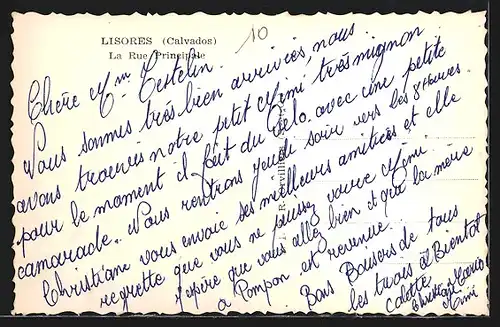 LISORES (Calvados)
La Rue Principale
10
Chère Mm Testelin.
Nous sommes très bien arrivées, nous
avons trouvées notre petit Mimi très mignon
pour le moment il fait du vélo avec une petite
camarade. Nous rentrons jeudi soir vers les 8 heures.
Christiane vous envoie ses meilleurs amitiées et elle
regrette que vous ne puissez voire Mimi
J'epère que vous allé bien et que la mère
a Pompon est revenue.
Bons Baisers de tous
les trois et Bientot
Colette
Christiane
Mimi